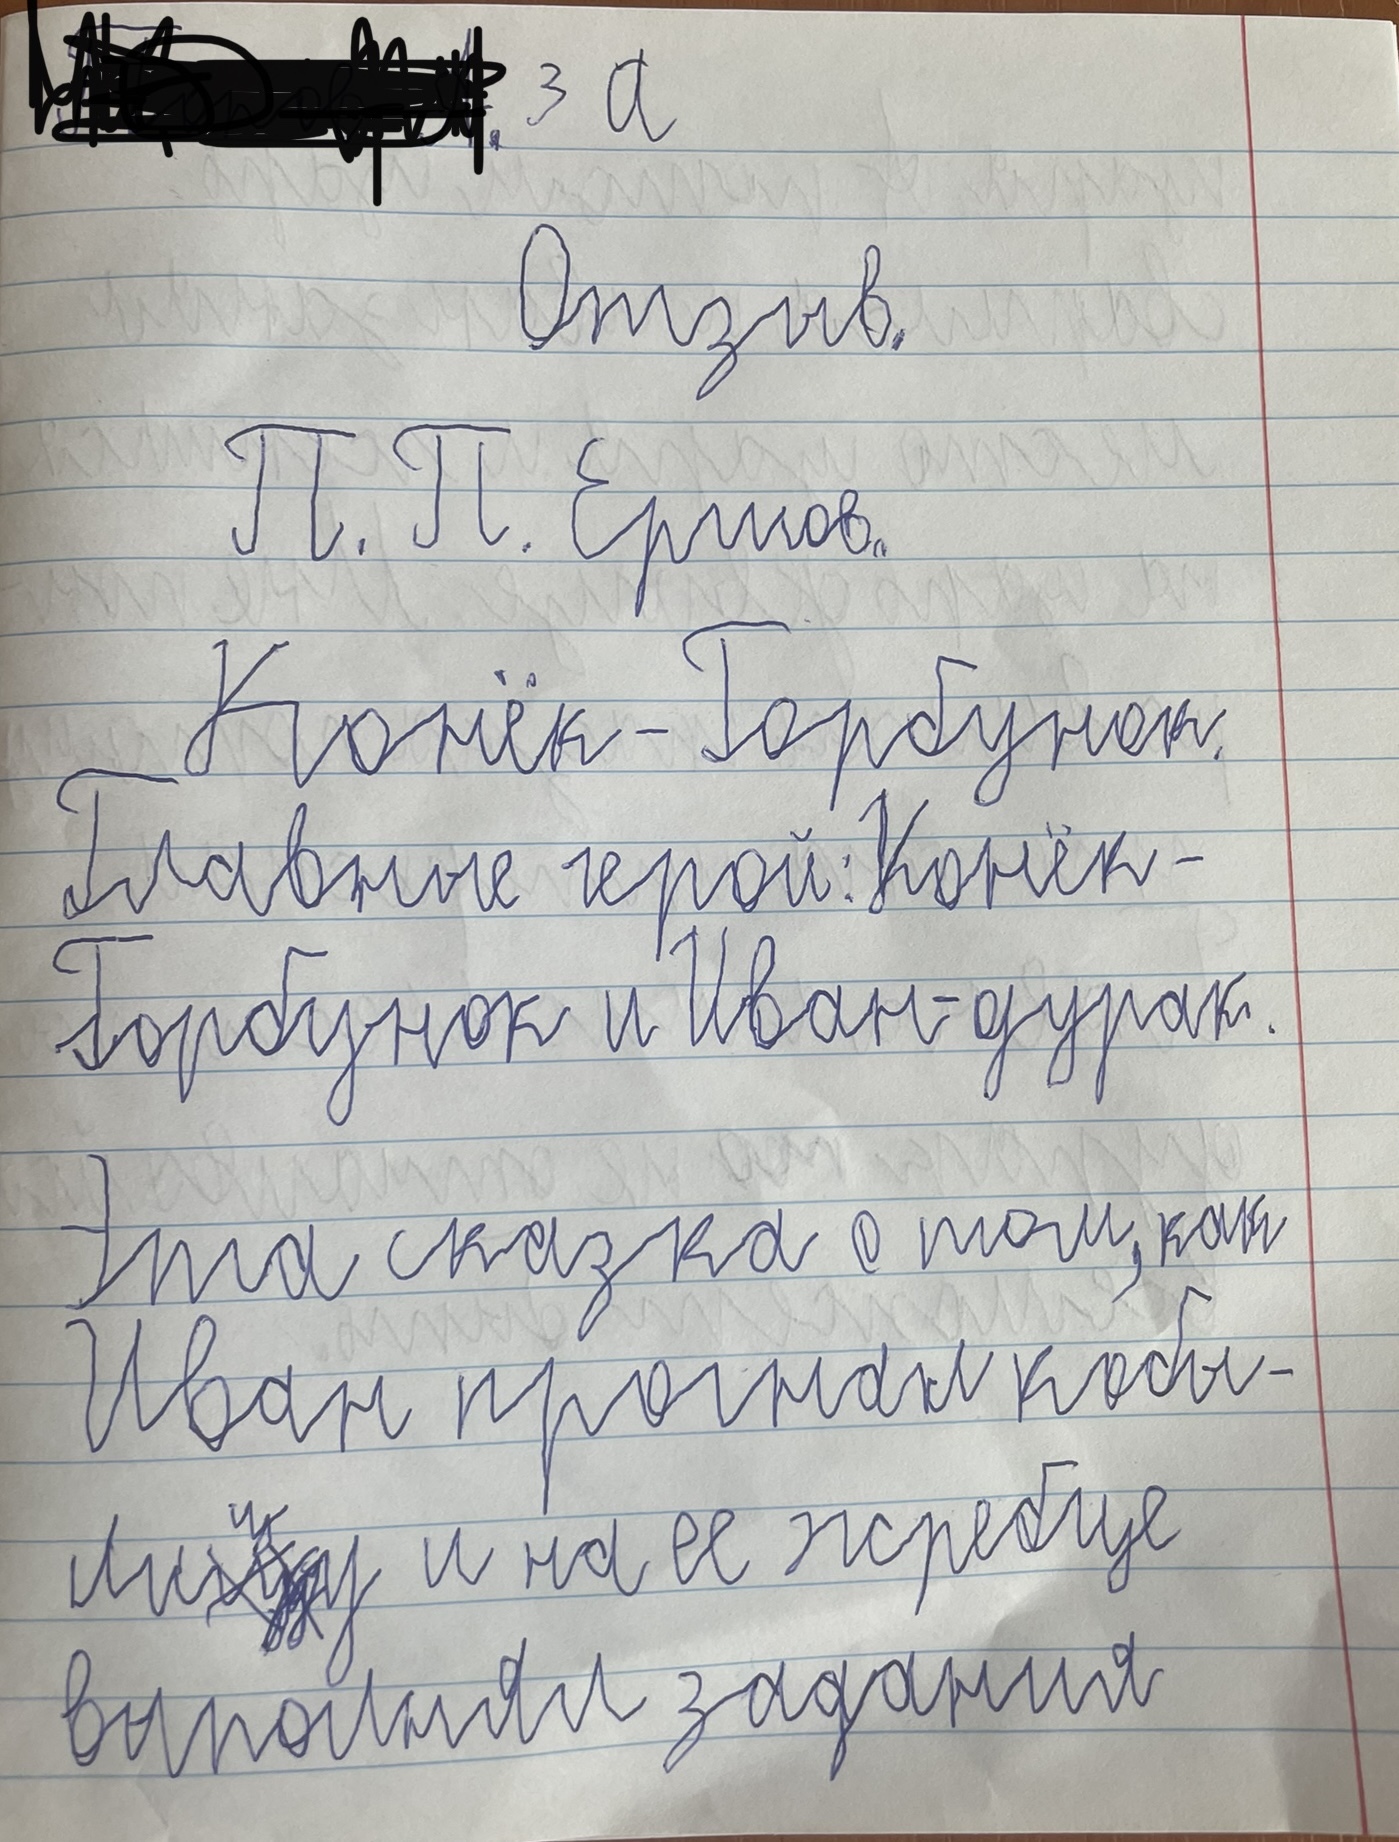 3 а
Отзыв.
П. П. Ершов.
Конёк-Горбунок.
Главные герой: Конёк-
Горбунок и Иван-дурак.
Эта сказка о том, как
Иван прогнал кобы-
лицу и на ее жребце
выполнял задания